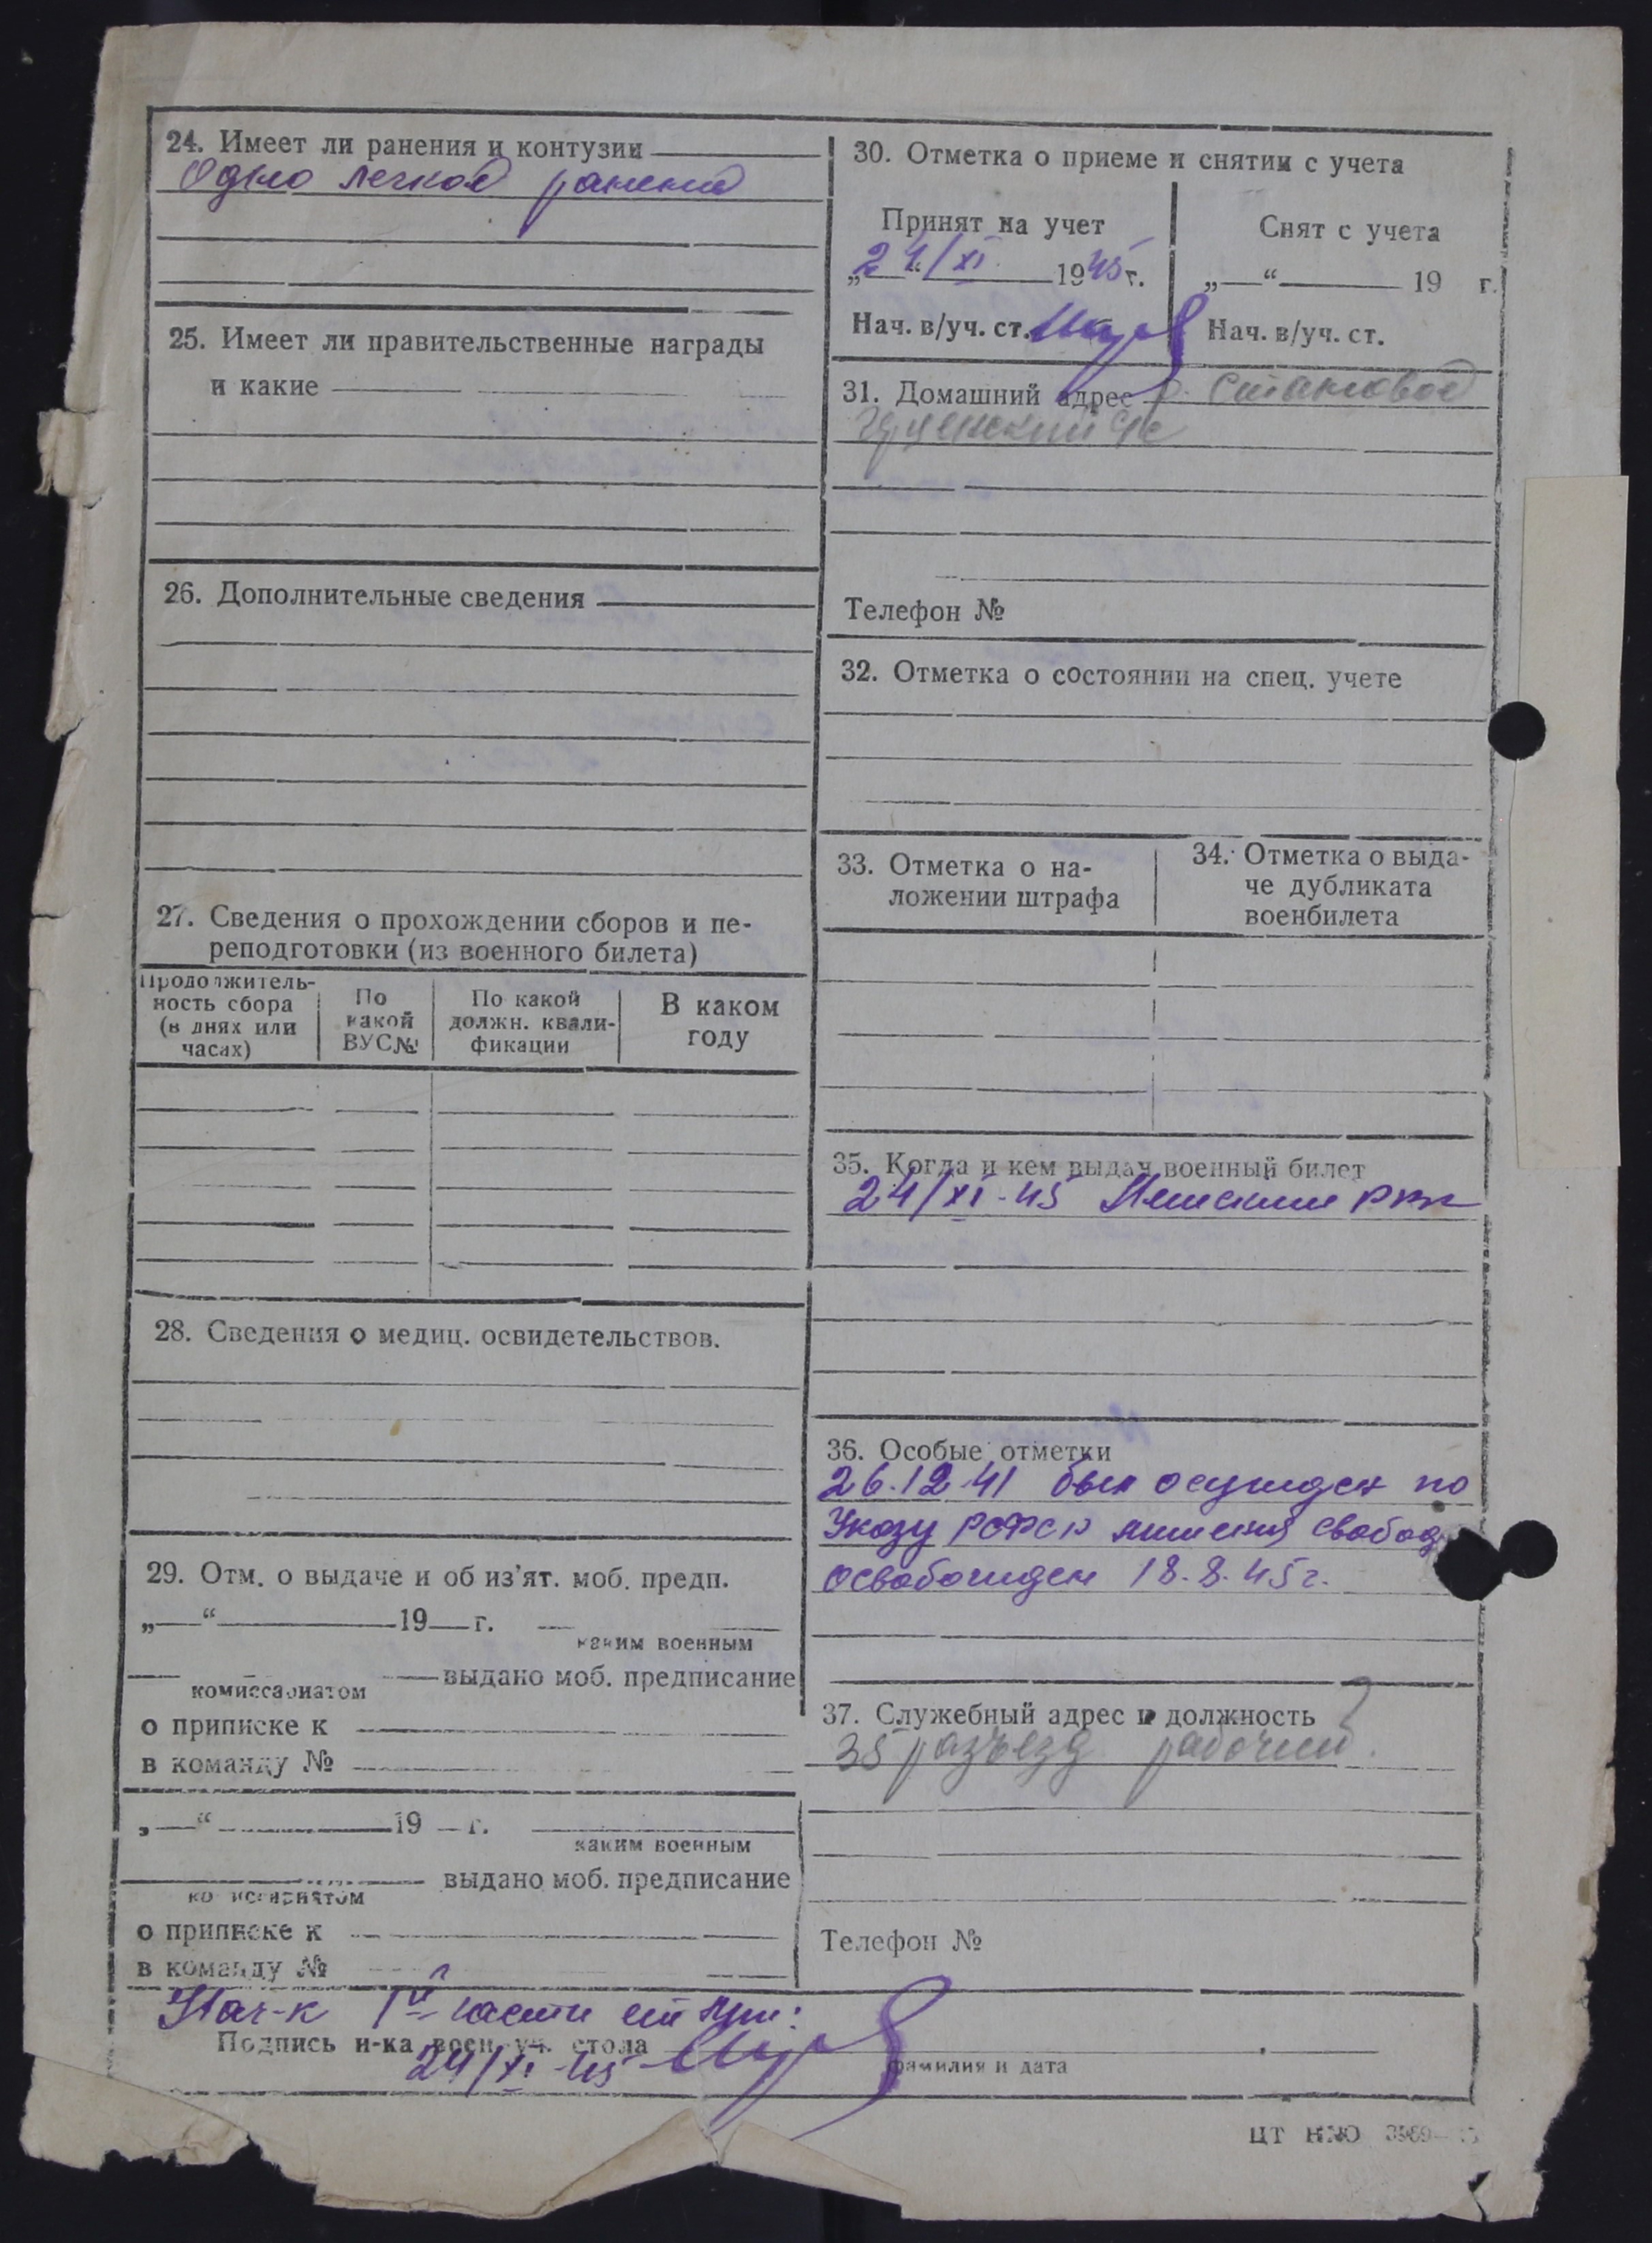 24. Имеет ли ранения и контузии
Одно легкое ранение
25. Имеет ли правительственные награды
и какие
26. Дополнительные сведения
27. Сведения о прохождении сборов и пе-
реподготовки (из военного билета)
Продолжитель-
ность сбора
(в днях или
часах)
По
какой
ВУС№
По какой
должн. квали-
фикации
В каком
году
28. Сведения о медиц. освидетельствов.
29. Отм. о выдаче и об из'ят. моб. предп.
„—“ 19 г.
каким военным
комиссариатом выдано моб. предписание
о приписке к
в команду №
„—“ 19 г.
каким военным
выдано моб. предписание
комиссариатом
о приписке к
в команду №
30. Отметка о приеме и снятии с учета
Принят на учет
„24“/XI 1945 г.
Нач. в/уч. ст.
Снят с учета
„—“ 19 г.
Нач. в/уч. ст.
31. Домашний адрес Становое
Телефон №
32. Отметка о состоянии на спец. учете
33. Отметка о на-
ложении штрафа
34. Отметка о выда-
че дубликата
военбилета
35. Когда и кем выдан военный билет
24/XI-45 РВК
36. Особые отметки
26.12.41 был осужден по
Указу РСФСР лишения свобод
освобожден 18.8.45 г.
37. Служебный адрес и должность
35 разъезд рабочий.
Телефон №
Нач-к 1й части
Подпись н-ка воен. уч. стола
24/XI-45
фамилия и дата
ЦТ НКО 3969